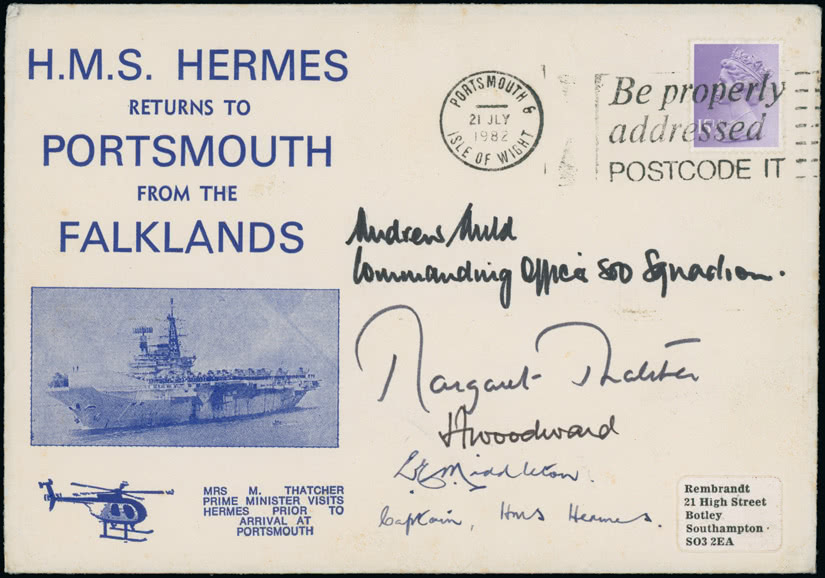 H.M.S. HERMES
RETURNS TO
PORTSMOUTH
FROM THE
FALKLANDS
PORTSMOUTH &
21 JLY
1982
ISLE OF WIGHT
Be properly
addressed
POSTCODE IT
Andrew Auld
Commanding Officer 800 Squadron.
Margaret Thatcher
Woodward
Middleton
Captain, HMS Hermes.
MRS M. THATCHER
PRIME MINISTER VISITS
HERMES PRIOR TO
ARRIVAL AT
PORTSMOUTH
Rembrandt
21 High Street
Botley
Southampton
SO3 2EA